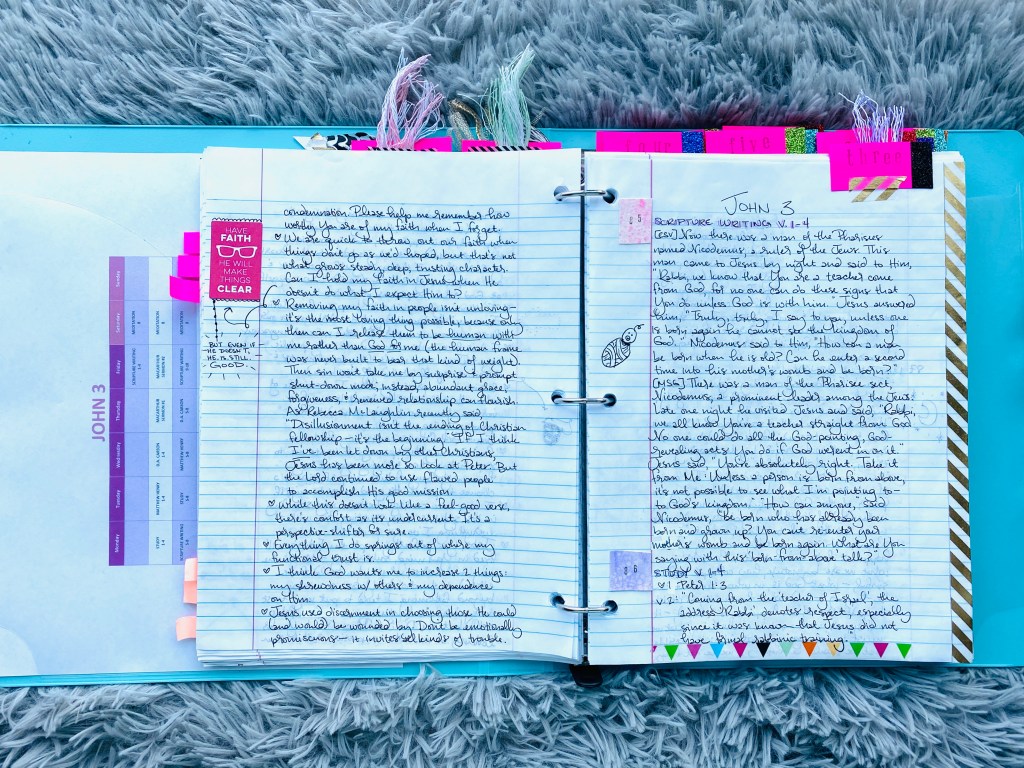 JOHN 3
Monday
Tuesday
Wednesday
Thursday
Friday
Saturday
Sunday
STUDY
1-4
MATTHEW HENRY
1-4
D.A. CARSON
1-4
MACARTHUR
SCRIPTURE WRITING
MEDITATION
HAVE
FAITH
HE WILL
MAKE
THINGS
CLEAR
BUT EVEN IF
HE DOESN'T,
HE IS STILL
GOOD.
condemnation. Please help me remember how
worthy You are of my faith when I forget.
We are quick to throw out our faith when
things don't go as we'd hoped, but that's not
what grows steady, deep, trusting character.
Can I hold my faith in Jesus when He
doesn't do what I expect Him to?
Removing my faith in people isn't unloving—
it's the most loving thing possible, because only
then can I release them to be human with
me rather than God for me (the human frame
was never built to bear that kind of weight).
Then sin won't take me by surprise & prompt
shut-down mode; instead, abundant grace,
forgiveness, & renewed relationship can flourish.
As Rebecca McLaughlin recently said,
"Disillusionment isn't the ending of Christian
fellowship—it's the beginning." If I think
I've been let down by other Christians,
Jesus has been more so. Look at Peter. But
the Lord continued to use flawed people
to accomplish His good mission.
While this doesn't look like a feel-good verse,
there's comfort as its undercurrent. It's a
perspective-shifter for sure.
Everything I do springs out of where my
functional trust is.
I think God wants me to increase 2 things:
my shrewdness w/ others & my dependence
on Him.
Jesus used discernment in choosing those He could
(and would) be wounded by. Don't be emotionally
promiscuous—it invites all kinds of trouble.
four
five
three
05
06
JOHN 3
SCRIPTURE WRITING V. 1-4
[ESV] Now there was a man of the Pharisees
named Nicodemus, a ruler of the Jews. This
man came to Jesus by night and said to Him,
"Rabbi, we know that You are a teacher come
from God, for no one can do these signs that
You do unless God is with him." Jesus answered
him, "Truly, truly, I say to you, unless one
is born again he cannot see the kingdom of
God." Nicodemus said to Him, "How can a man
be born when he is old? Can he enter a second
time into his mother's womb and be born?"
[MSG] There was a man of the Pharisee sect,
Nicodemus, a prominent leader among the Jews.
Late one night he visited Jesus and said, "Rabbi,
we all know You're a teacher straight from God.
No one could do all the God-pointing, God-
revealing acts You do if God weren't in on it."
Jesus said, "You're absolutely right. Take it
from Me: Unless a person is born from above,
it's not possible to see what I'm pointing to—
to God's kingdom." "How can anyone," said
Nicodemus, "be born who has already been
born and grown up? You can't re-enter your
mother's womb and be born again. What are You
saying with this 'born-from-above' talk?"
STUDY V. 1-4
1 Peter 1:3
v. 2: "Coming from the 'teacher of Israel', the
address 'Rabbi' denotes respect, especially
since it was known that Jesus did not
have formal rabbinic training."